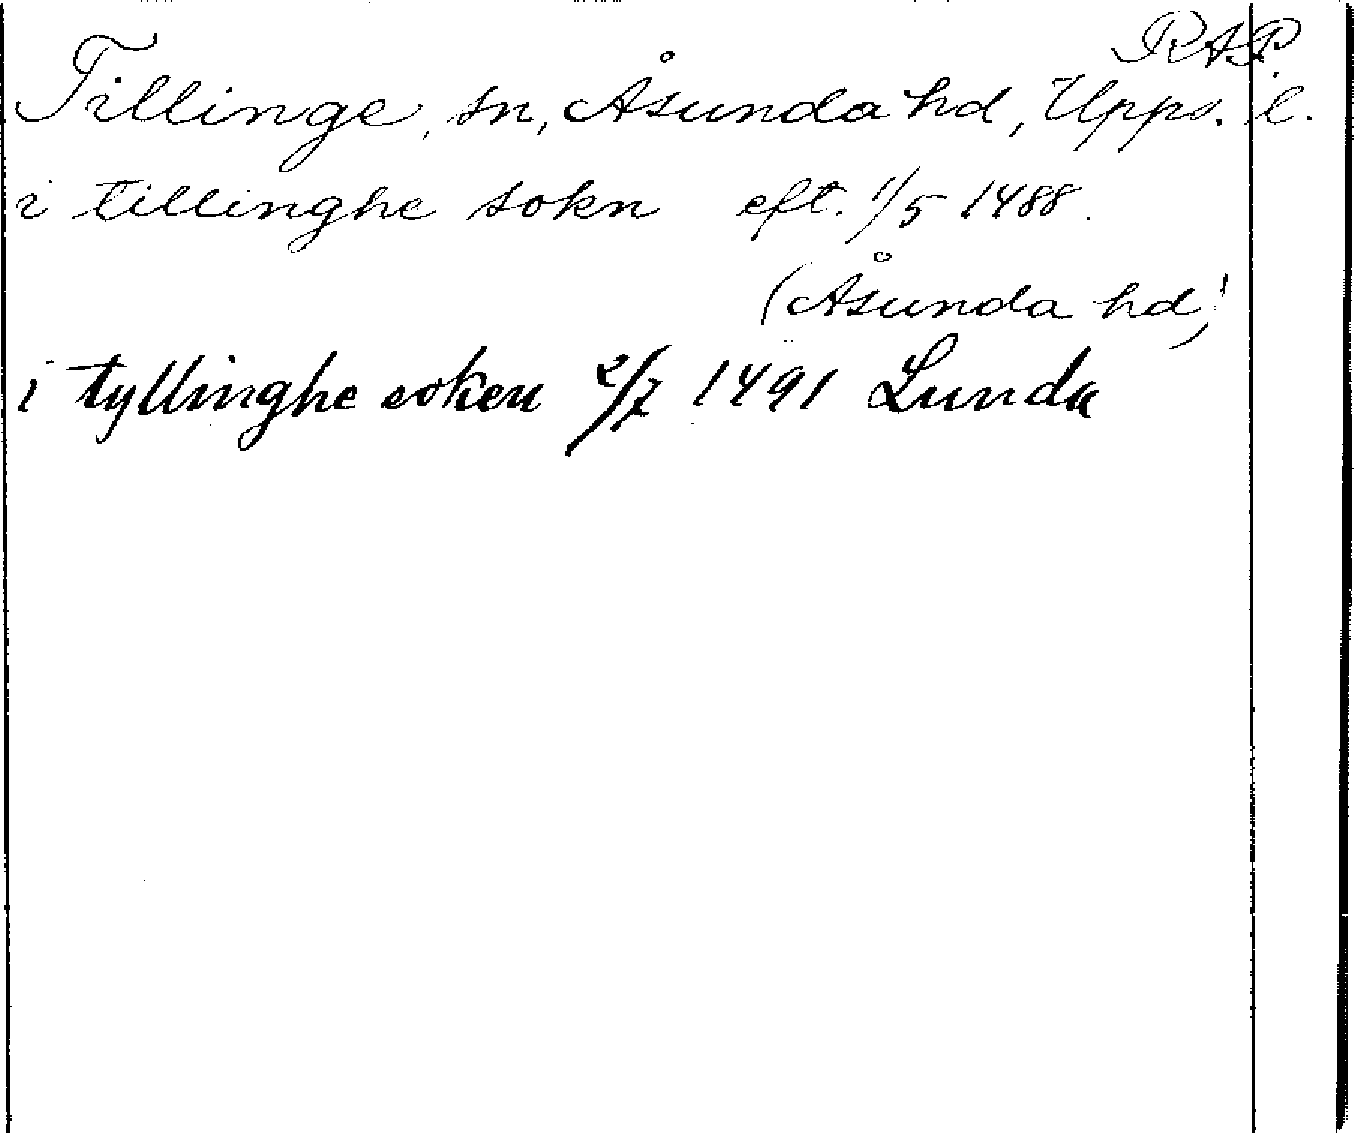 RAP
Tillinge, sn, Åsunda hd, Upps. l.
i tillinghe sokn eft. 1/5 1488.
(Åsunda hd)
i tyllinghe soken 2/7 1491 Lunda